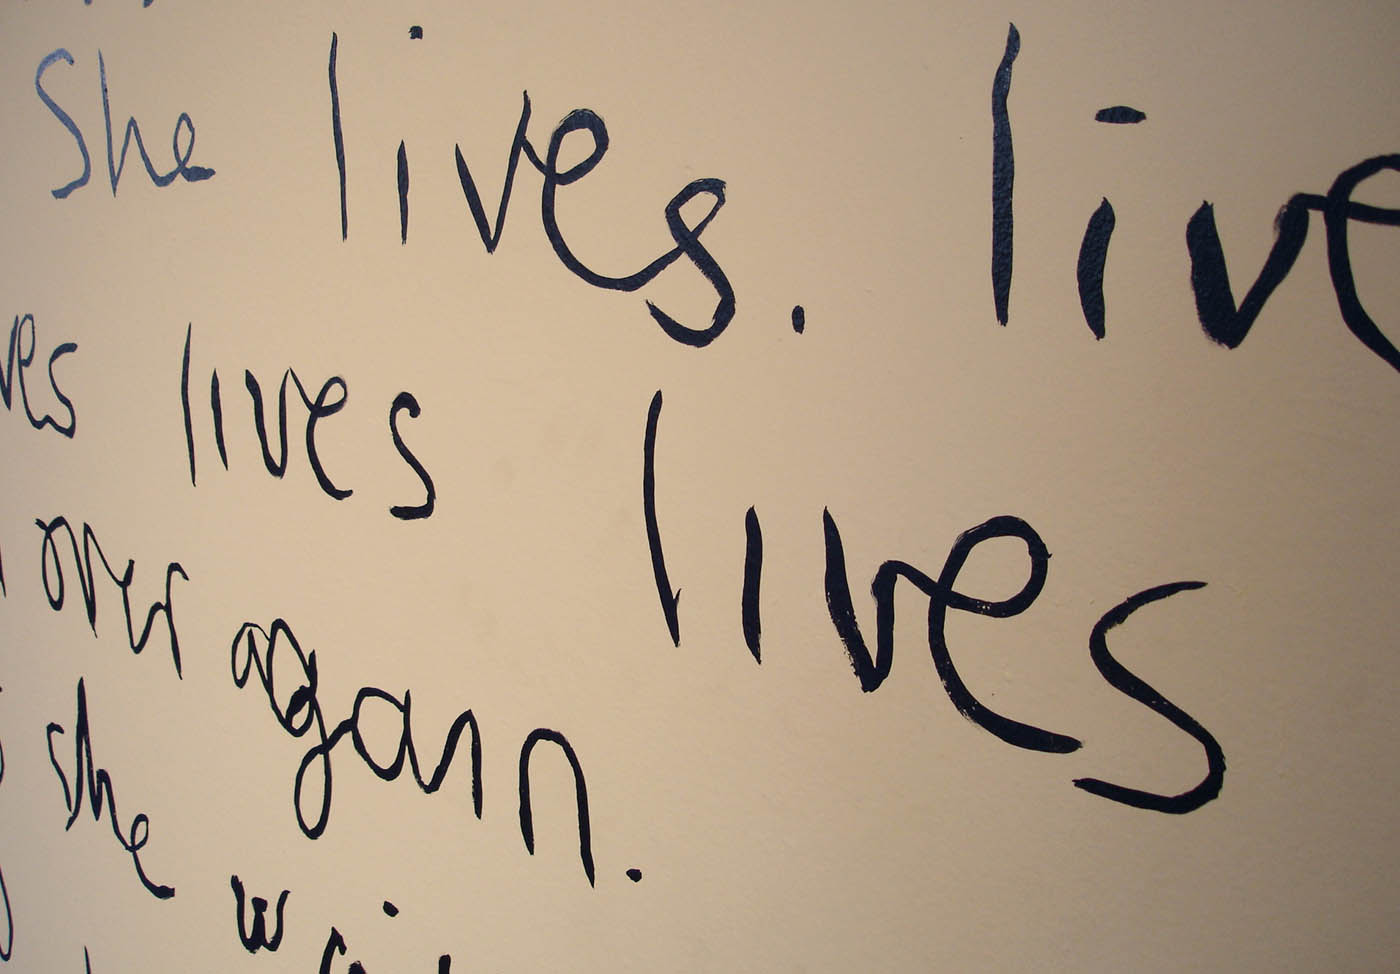 She lives. live
ves lives lives
over again.
she